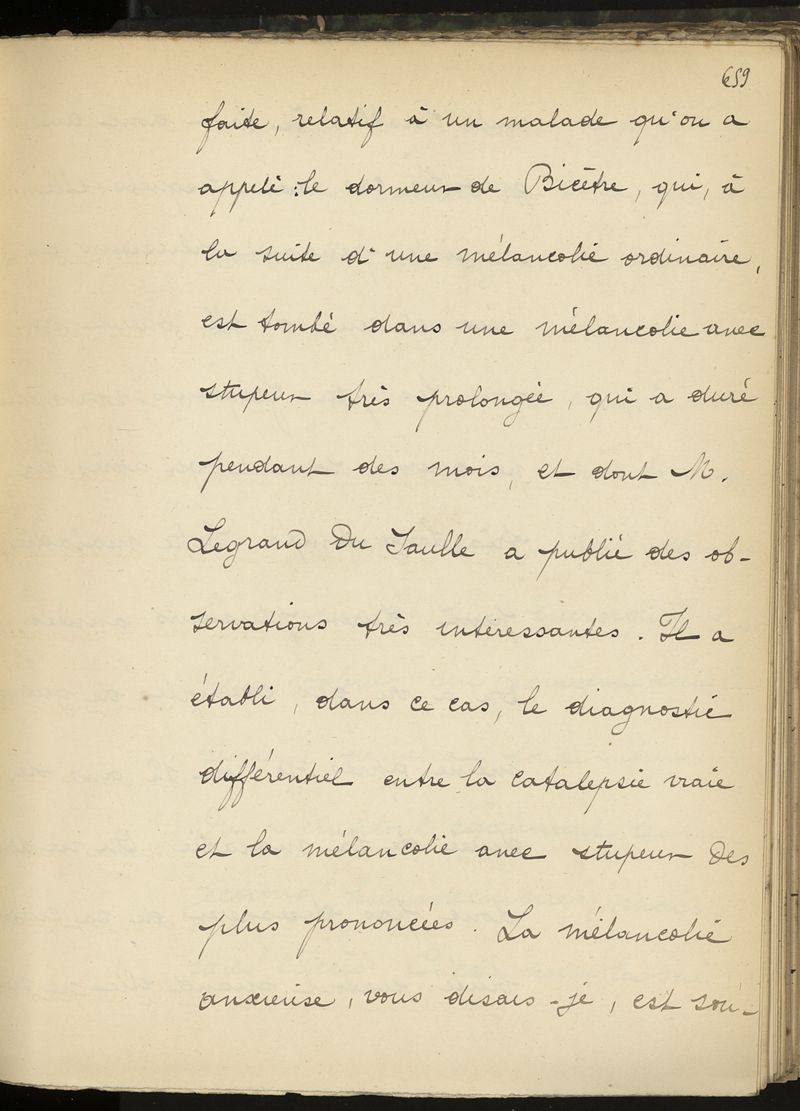 659
faite, relatif à un malade qu'on a
appelé : le dormeur de Bicêtre, qui, à
la suite d'une mélancolie ordinaire,
est tombé dans une mélancolie avec
stupeur très prolongée, qui a duré
pendant des mois, et dont M.
Legrand Du Saulle a publié des ob-
servations très intéressantes. Il a
établi, dans ce cas, le diagnostic
différentiel entre la catalepsie vraie
et la mélancolie avec stupeur des
plus prononcées. La mélancolie
anxieuse, vous disais-je, est sou-